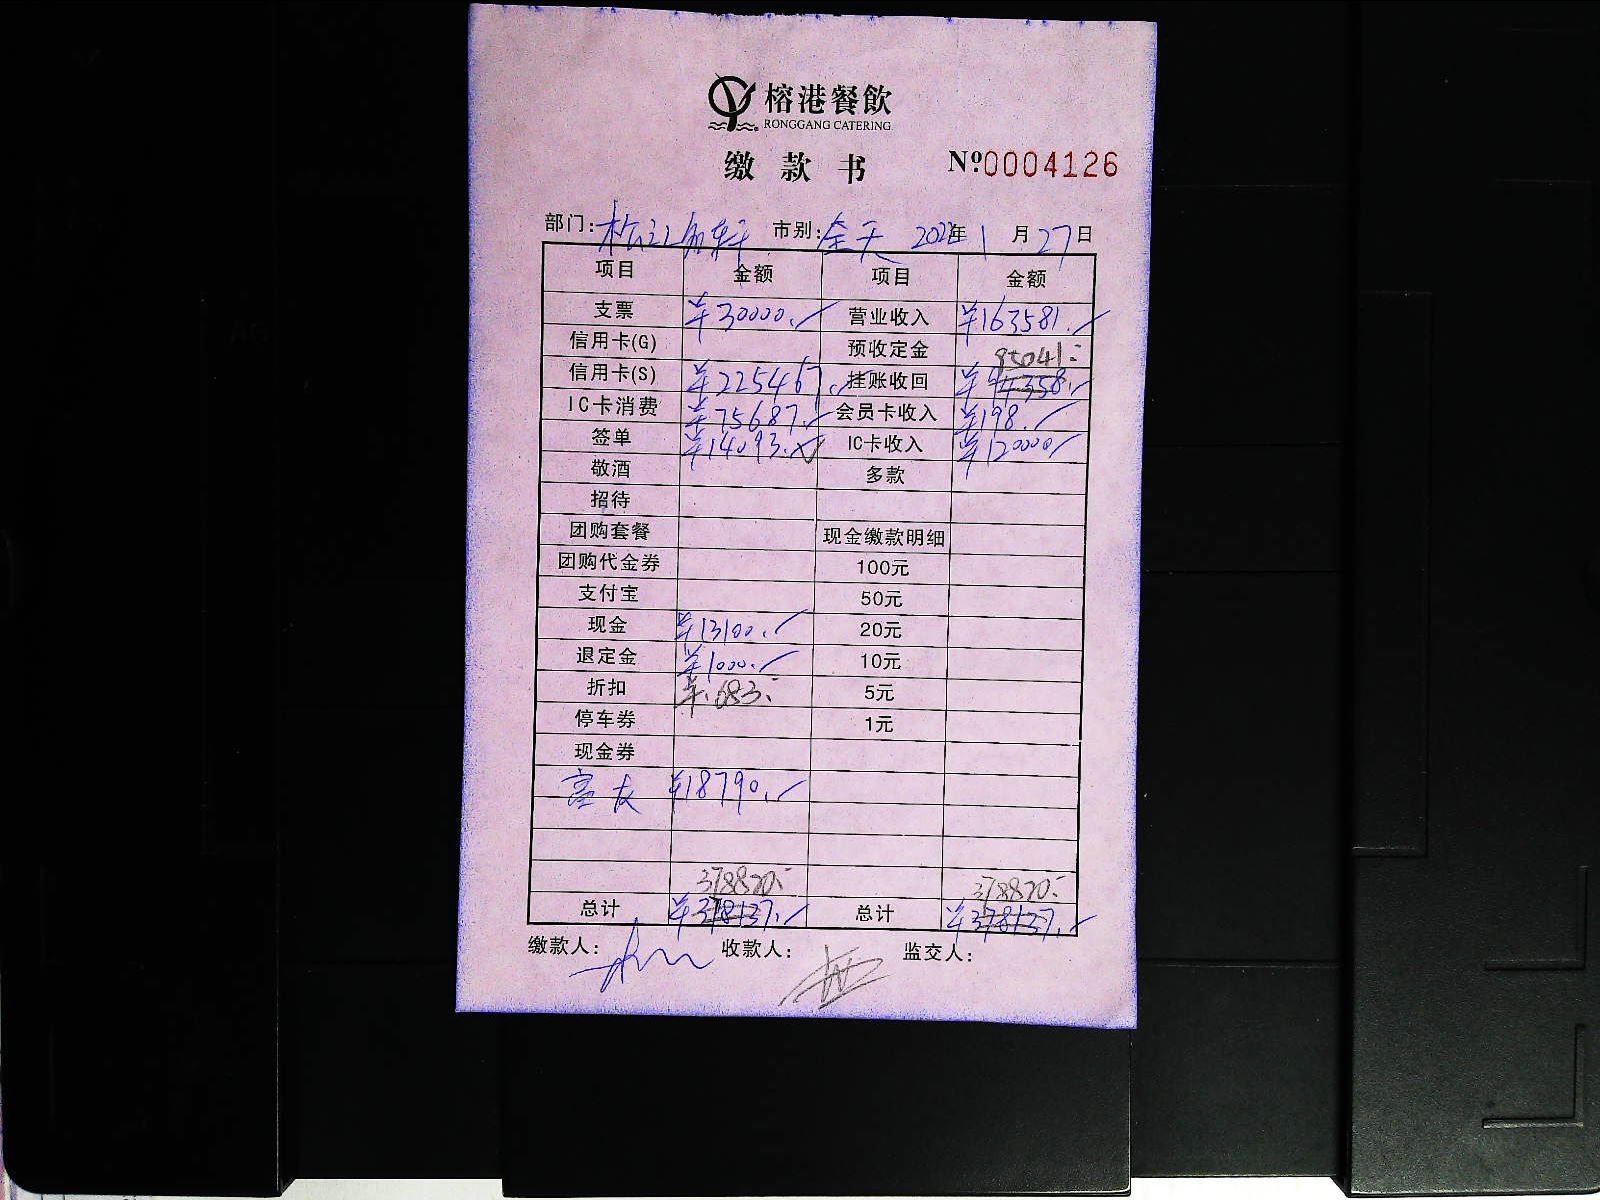 榕港餐飲
RONGGANG CATERING
缴款书 №0004126
部门: 松江 轩 市别: 全天 2022年1月27日
项目 金额 项目 金额
支票 ¥30000. 营业收入 ¥163581.
信用卡(G) 预收定金
95041.-
信用卡(S) ¥225467. 挂账收回 ¥94358.
IC卡消费 ¥75687. 会员卡收入 ¥198.
签单 ¥14093. IC卡收入 ¥120000
敬酒 多款
招待
团购套餐 现金缴款明细
团购代金券 100元
支付宝 50元
现金 ¥13100. 20元
退定金 ¥1000. 10元
折扣 ¥.683.- 5元
停车券 1元
现金券
富友 ¥18790.
378820.- 378820.-
总计 ¥378137. 总计 ¥378137.
缴款人: 收款人: 监交人: